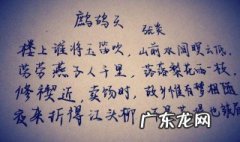 鹧鸪天
张炎
楼上谁将玉笛吹，山前水阔暝云低。
劳劳燕子人千里，落落梨花雨一枝。
修禊近，卖饧时，故乡惟有梦相随。
夜来折得江头柳，